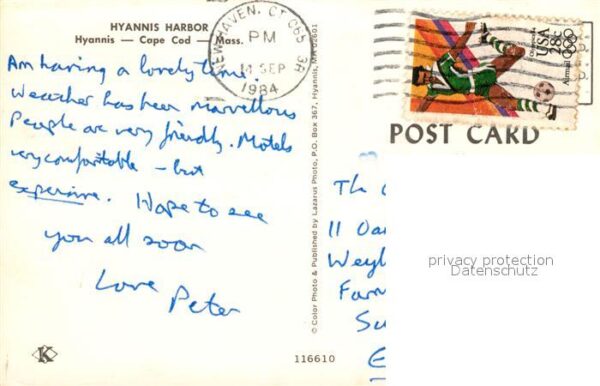 HYANNIS HARBOR
Hyannis — Cape Cod — Mass.
Am having a lovely time.
Weather has been marvellous
People are very friendly. Motels
very comfortable – but
expensive. Hope to see
you all soon
Love
Peter
K
116610
© Color Photo & Published by Lazarus Photo, P.O. Box 367, Hyannis, MA 02601
NEW HAVEN, CT 065 3A
PM
11 SEP
1984
USA
28c
Airmail
POST CARD
Th
11 Oa
Weyb
Farn
Su
E
privacy protection
Datenschutz